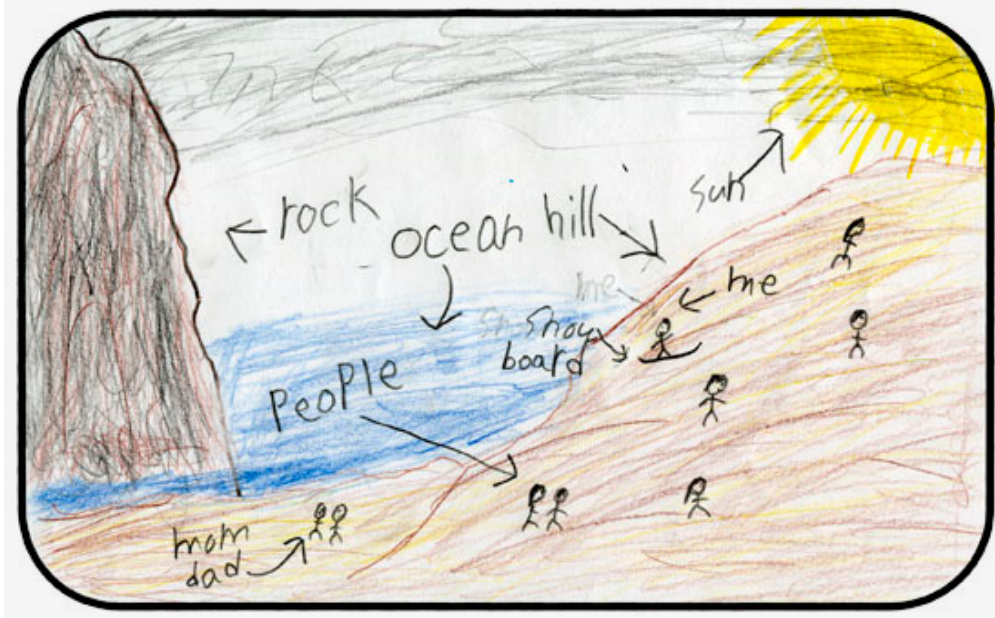 sun
rock
ocean
hill
me
me
Sn Snow
board
PeoPle
mom
dad